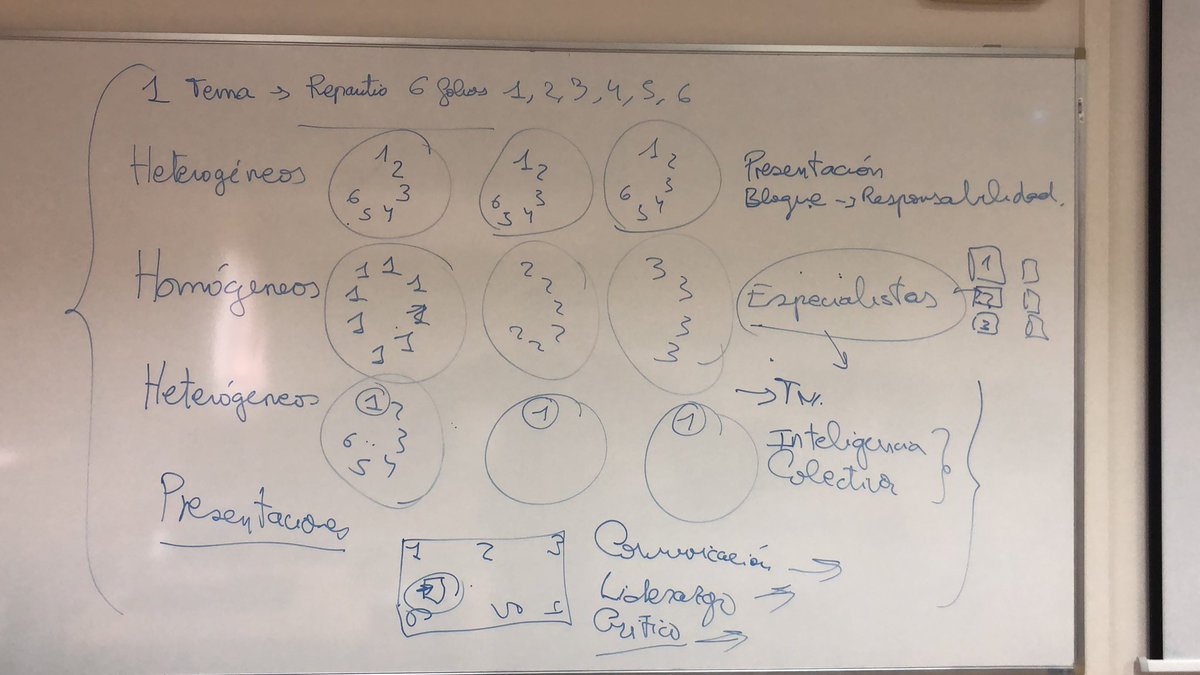 1 Tema → Repartio 6 folios 1, 2, 3, 4, 5, 6
Heterogéneos
1 2 3 4 5 6
1 2 3 4 5 6
1 2 3 4 5 6
Presentación
Bloque → Responsabilidad.
Homógeneos
1 1 1 1 1 1 1
2 2 2 2 2 2
3 3 3 3
Especialistas
1
2
3
Heterógeneos
1 2 3 4 5 6
1
1
Inteligencia
Colectiva
Presentaciones
1 2 3
Comunicación →
Liderazgo →
Crítico →